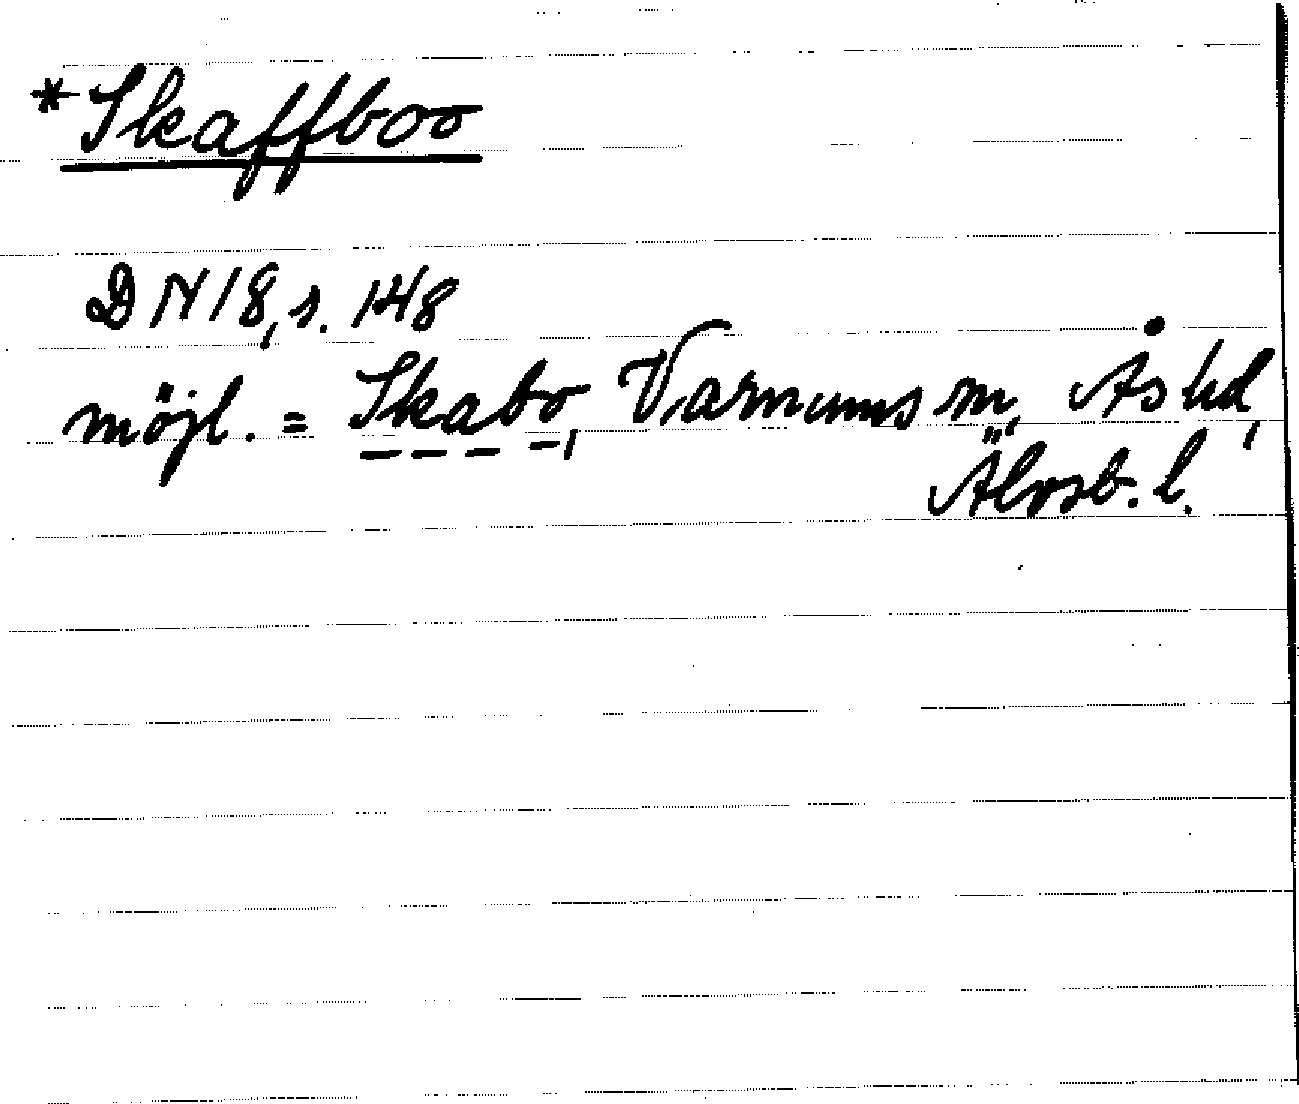 *Skaffboo
DN 18, s. 148
möjl. = Skabo, Varnums sn, Ås hd,
Älvsb. l.